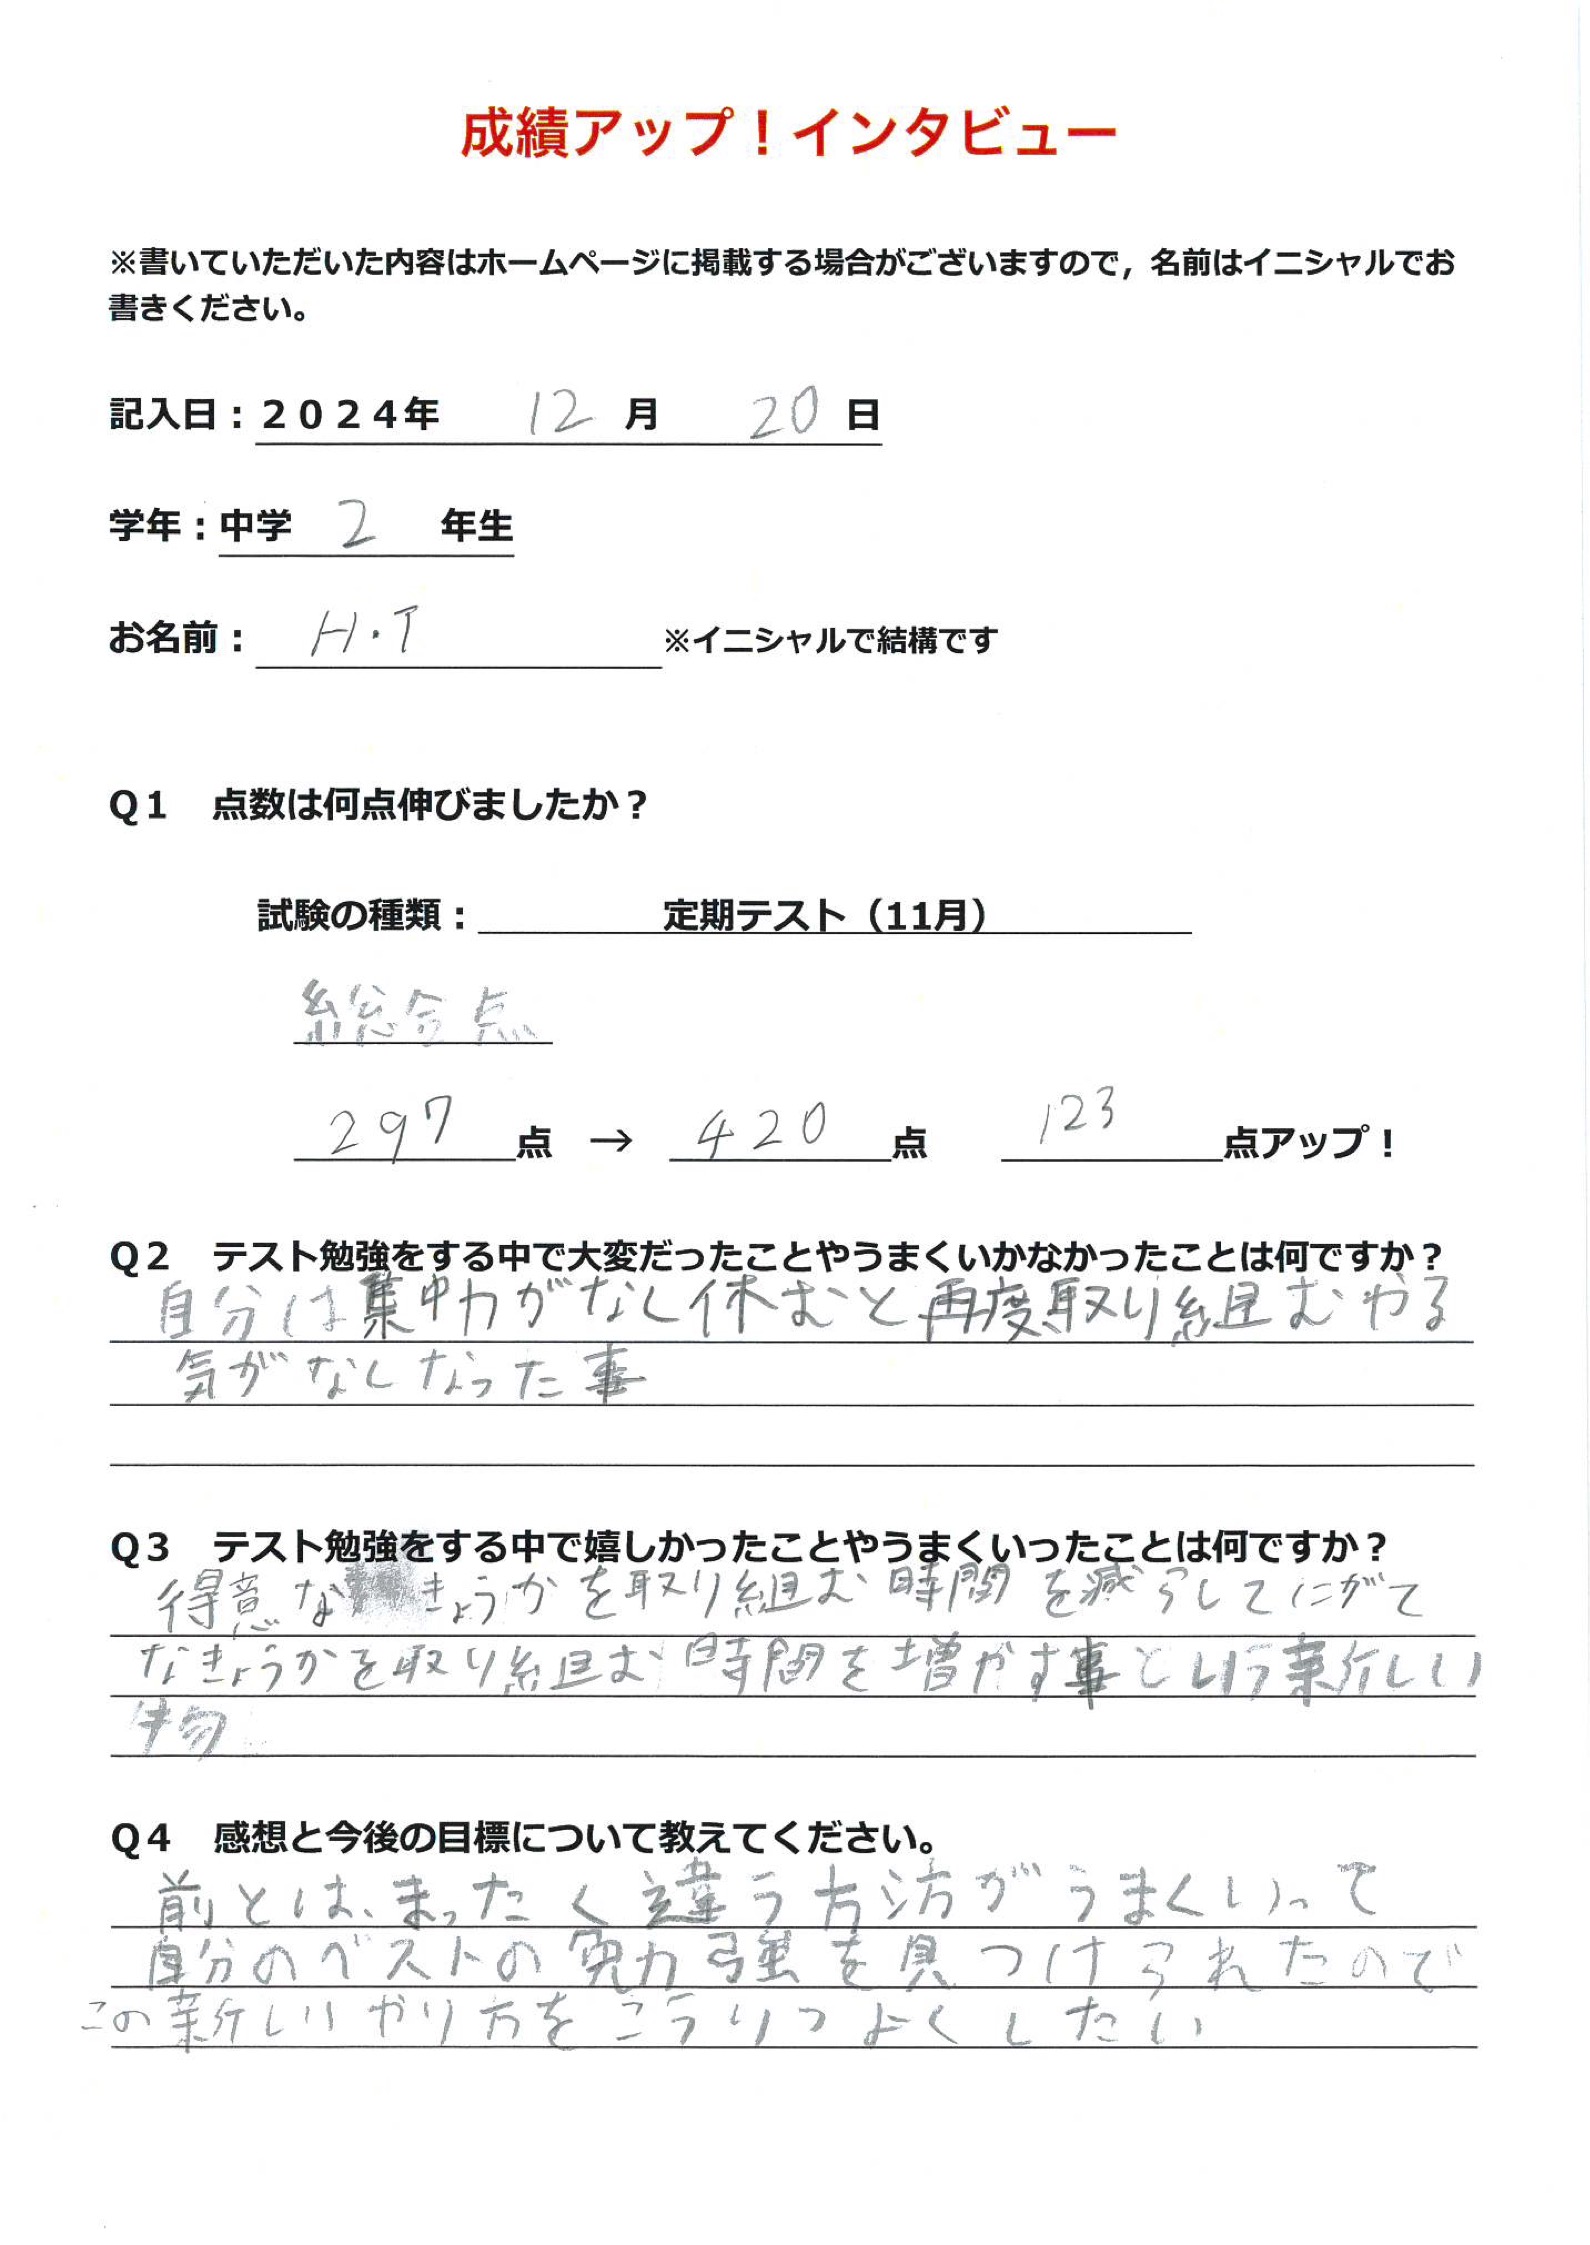 成績アップ！インタビュー
※書いていただいた内容はホームページに掲載する場合がございますので，名前はイニシャルでお
書きください。
記入日：２０２４年 12 月 20 日
学年：中学 2 年生
お名前： H.T ※イニシャルで結構です
Ｑ１ 点数は何点伸びましたか？
試験の種類： 定期テスト（11月）
総合点
297 点 → 420 点 123 点アップ！
Ｑ２ テスト勉強をする中で大変だったことやうまくいかなかったことは何ですか？
自分は集中力がなく休むと再度取り組むやる
気がなくなった事
Ｑ３ テスト勉強をする中で嬉しかったことやうまくいったことは何ですか？
得意なきょうかを取り組む時間を減らしてにがて
なきょうかを取り組む時間を増やす事という新しい
物
Ｑ４ 感想と今後の目標について教えてください。
前とは、まったく違う方法がうまくいって
自分のベストの勉強を見つけられたので
この新しいやり方をこうりつよくしたい